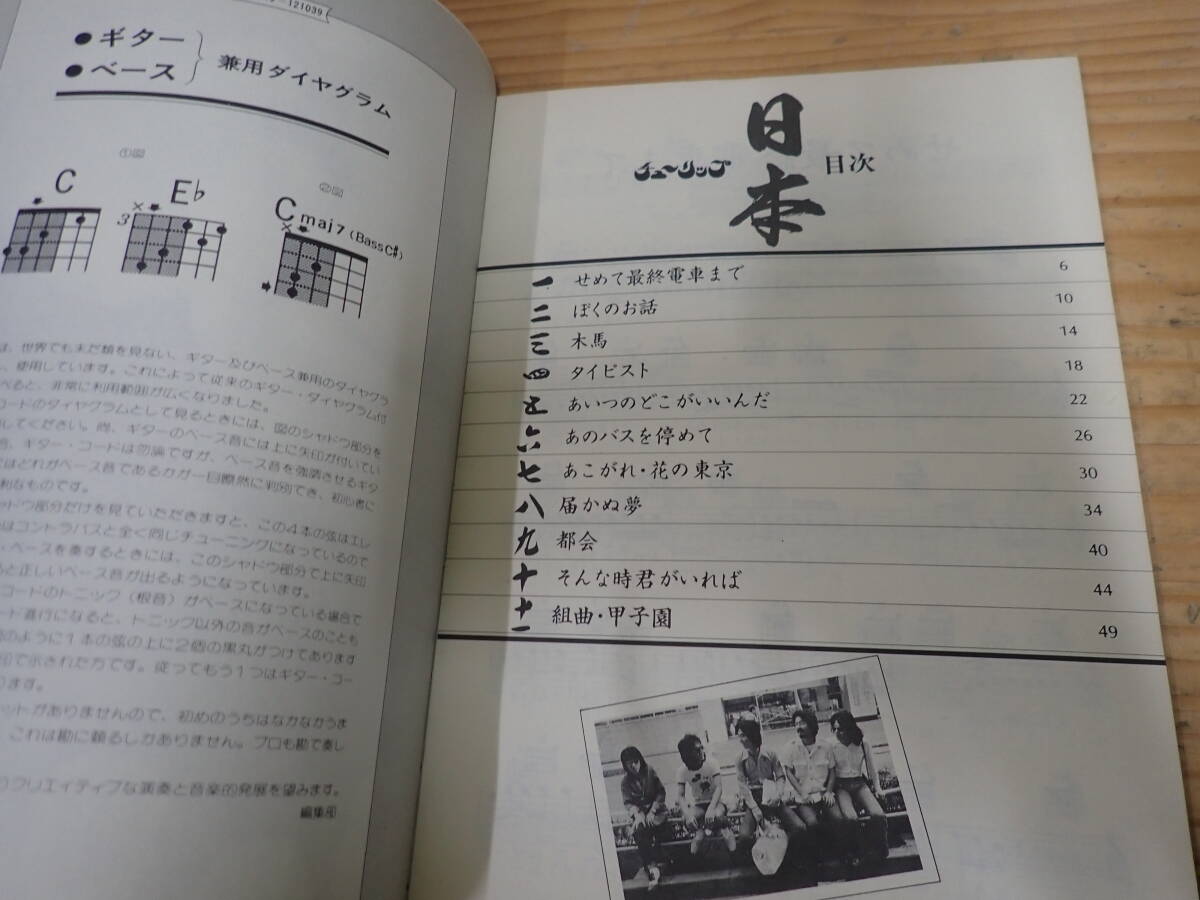 121039
●ギター
●ベース
兼用ダイヤグラム
①図
②図
C
E♭
3
Cmaj7(Bass C♯)
は、世界でも未だ類を見ない、ギター及びベース兼用のダイヤグラ
、使用しています。これによって従来のギター・ダイヤグラム付
べると、非常に利用範囲が広くなりました。
コードのダイヤグラムとして見るときには、図のシャドウ部分を
してください。尚、ギターのベース音には上に矢印が付いてい
音、ギター・コードは勿論ですが、ベース音を強調させるギタ
はどれがベース音であるかが一目瞭然に判別でき、初心者に
利なものです。
ャドウ部分だけを見ていただきますと、この4本の弦はエレ
はコントラバスと全く同じチューニングになっているので
・ベースを奏するときには、このシャドウ部分で上に矢印
ると正しいベース音が出るようになっています。
コードのトニック（根音）がベースになっている場合で
ード進行になると、トニック以外の音がベースのことも
図のように1本の弦の上に2個の黒丸がつけてあります
印で示された方です。従ってもう1つはギター・コー
ります。
ットがありませんので、初めのうちはなかなかうま
、これは勘に頼るしかありません。プロも勘で奏し
うクリエイティブな演奏と音楽的発展を望みます。
編集部
チューリップ
日本
目次
一 せめて最終電車まで 6
二 ぼくのお話 10
三 木馬 14
四 タイピスト 18
五 あいつのどこがいいんだ 22
六 あのバスを停めて 26
七 あこがれ・花の東京 30
八 届かぬ夢 34
九 都会 40
十 そんな時君がいれば 44
十一 組曲・甲子園 49